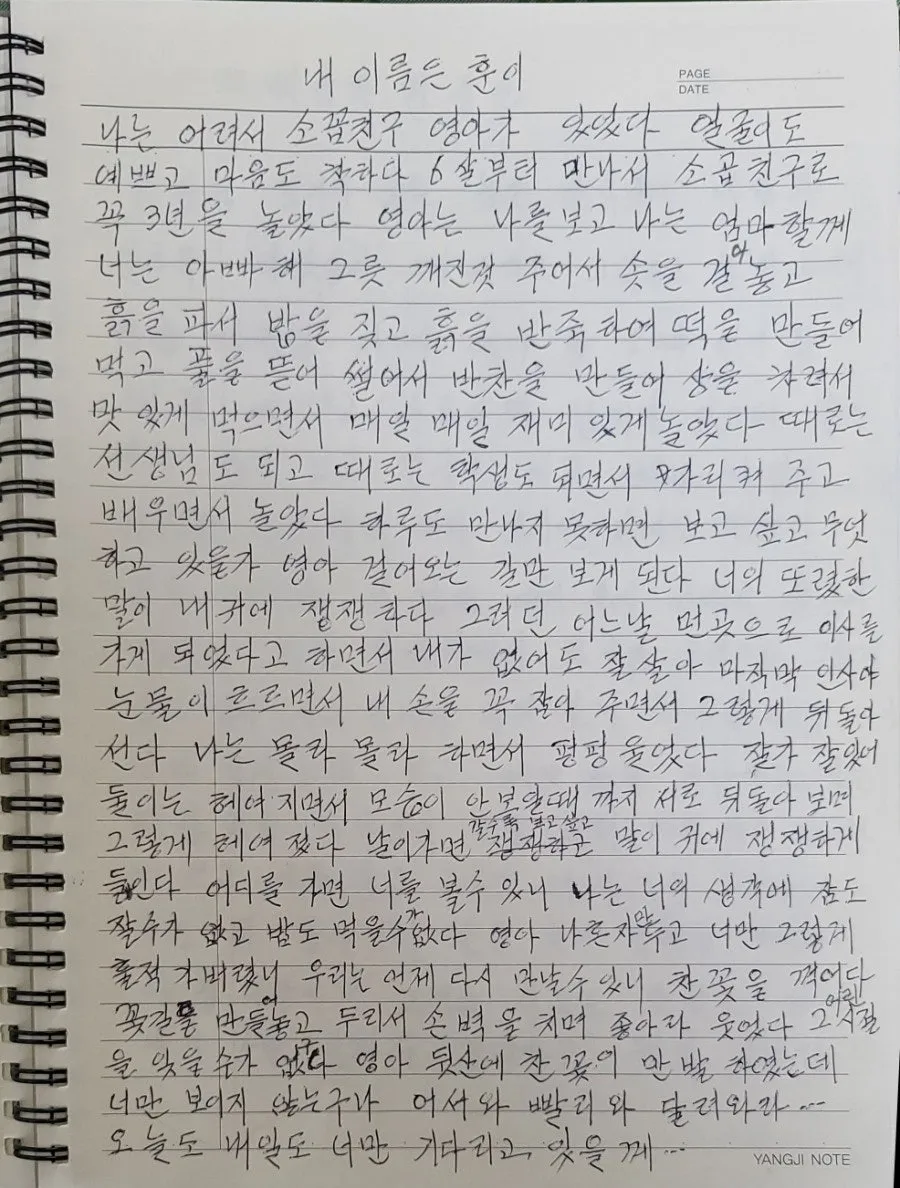 내 이름은 훈이
PAGE
DATE
나는 어려서 소꼽친구 영아가 있었다 얼굴이도
예쁘고 마음도 착하다 6살부터 만나서 소곱친구로
꼭 3년을 놀았다 영아는 나를보고 나는 엄마할께
너는 아빠해 그릇 깨진것 주어서 솟을 걸어놓고
흙을 파서 밥을 짖고 흙을 반죽하여 떡을 만들어
먹고 풀을 뜯어 썰어서 반찬을 만들어 상을 차려서
맛 있게 먹으면서 매일 매일 재미 있게놀았다 때로는
선생님도 되고 때로는 학생도 되면서 가리켜 주고
배우면서 놀았다 하루도 만나지 못하면 보고 싶고 무엇
하고 있을가 영아 걸어오는 길만 보게 된다 너의 또렸한
말이 내귀에 쟁쟁하다 그러던 어느날 먼곳으로 이사를
가게 되었다고 하면서 내가 없어도 잘살아 마직막 인사야
눈물이 흐르면서 내 손을 꼭 잡아 주면서 그렇게 뒤돌아
선다 나는 몰라 몰라 하면서 펑펑 울었다 잘가 잘있어
둘이는 헤여지면서 모습이 안보일때 까지 서로 뒤돌아 보며
그렇게 헤여 젔다 날이가면 갈수록 보고싶고 말이 귀에 쟁쟁하게
들린다 어디를 가면 너를 볼수 있니 나는 너의 생각에 잠도
잘수가 없고 밥도 먹을수가없다 영아 나혼자만두고 너만 그렇게
훌적 가버렸니 우리는 언제 다시 만날수 있니 찬꽃을 꺽어다
꽃길을 만들어놓고 두리서 손벽을 치며 좋아라 웃었다 그어린시절
을 잊을 수가 없구나 영아 뒷산에 찬꽃이 만발 하였는데
너만 보이지 않는구나 어서와 빨리와 달려와라...
오늘도 내일도 너만 기다리고 있을께...
YANGJI NOTE